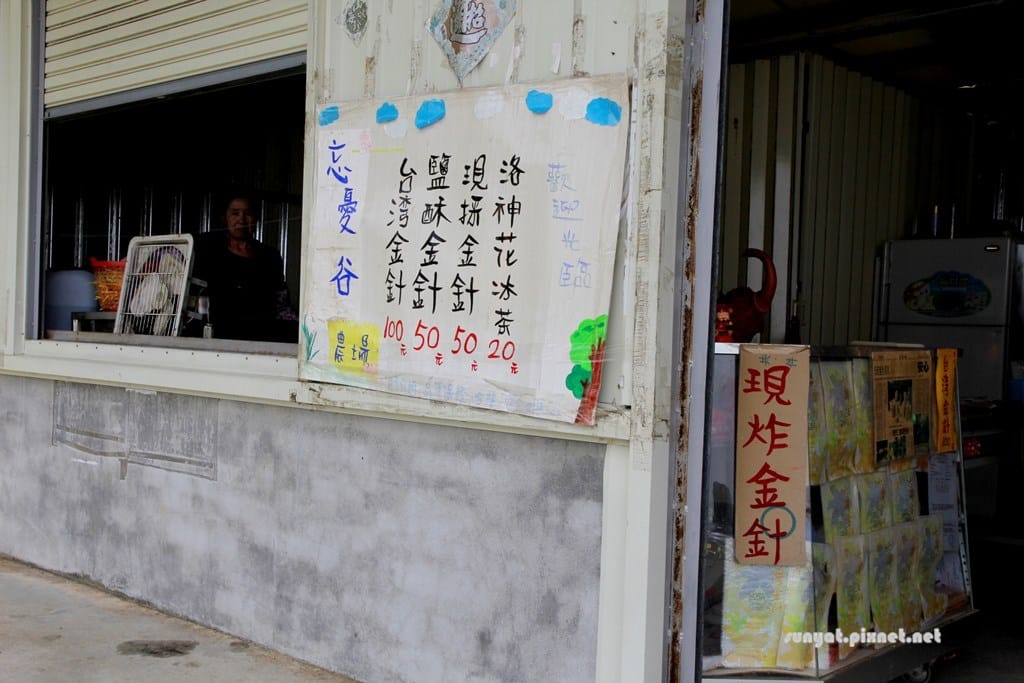 忘憂谷
農場
台湾金針 100元
鹽酥金針 50元
現採金針 50元
洛神花冰茶 20元
歡迎光臨
現炸金針
安心
台湾金針
sunyat.pixnet.net